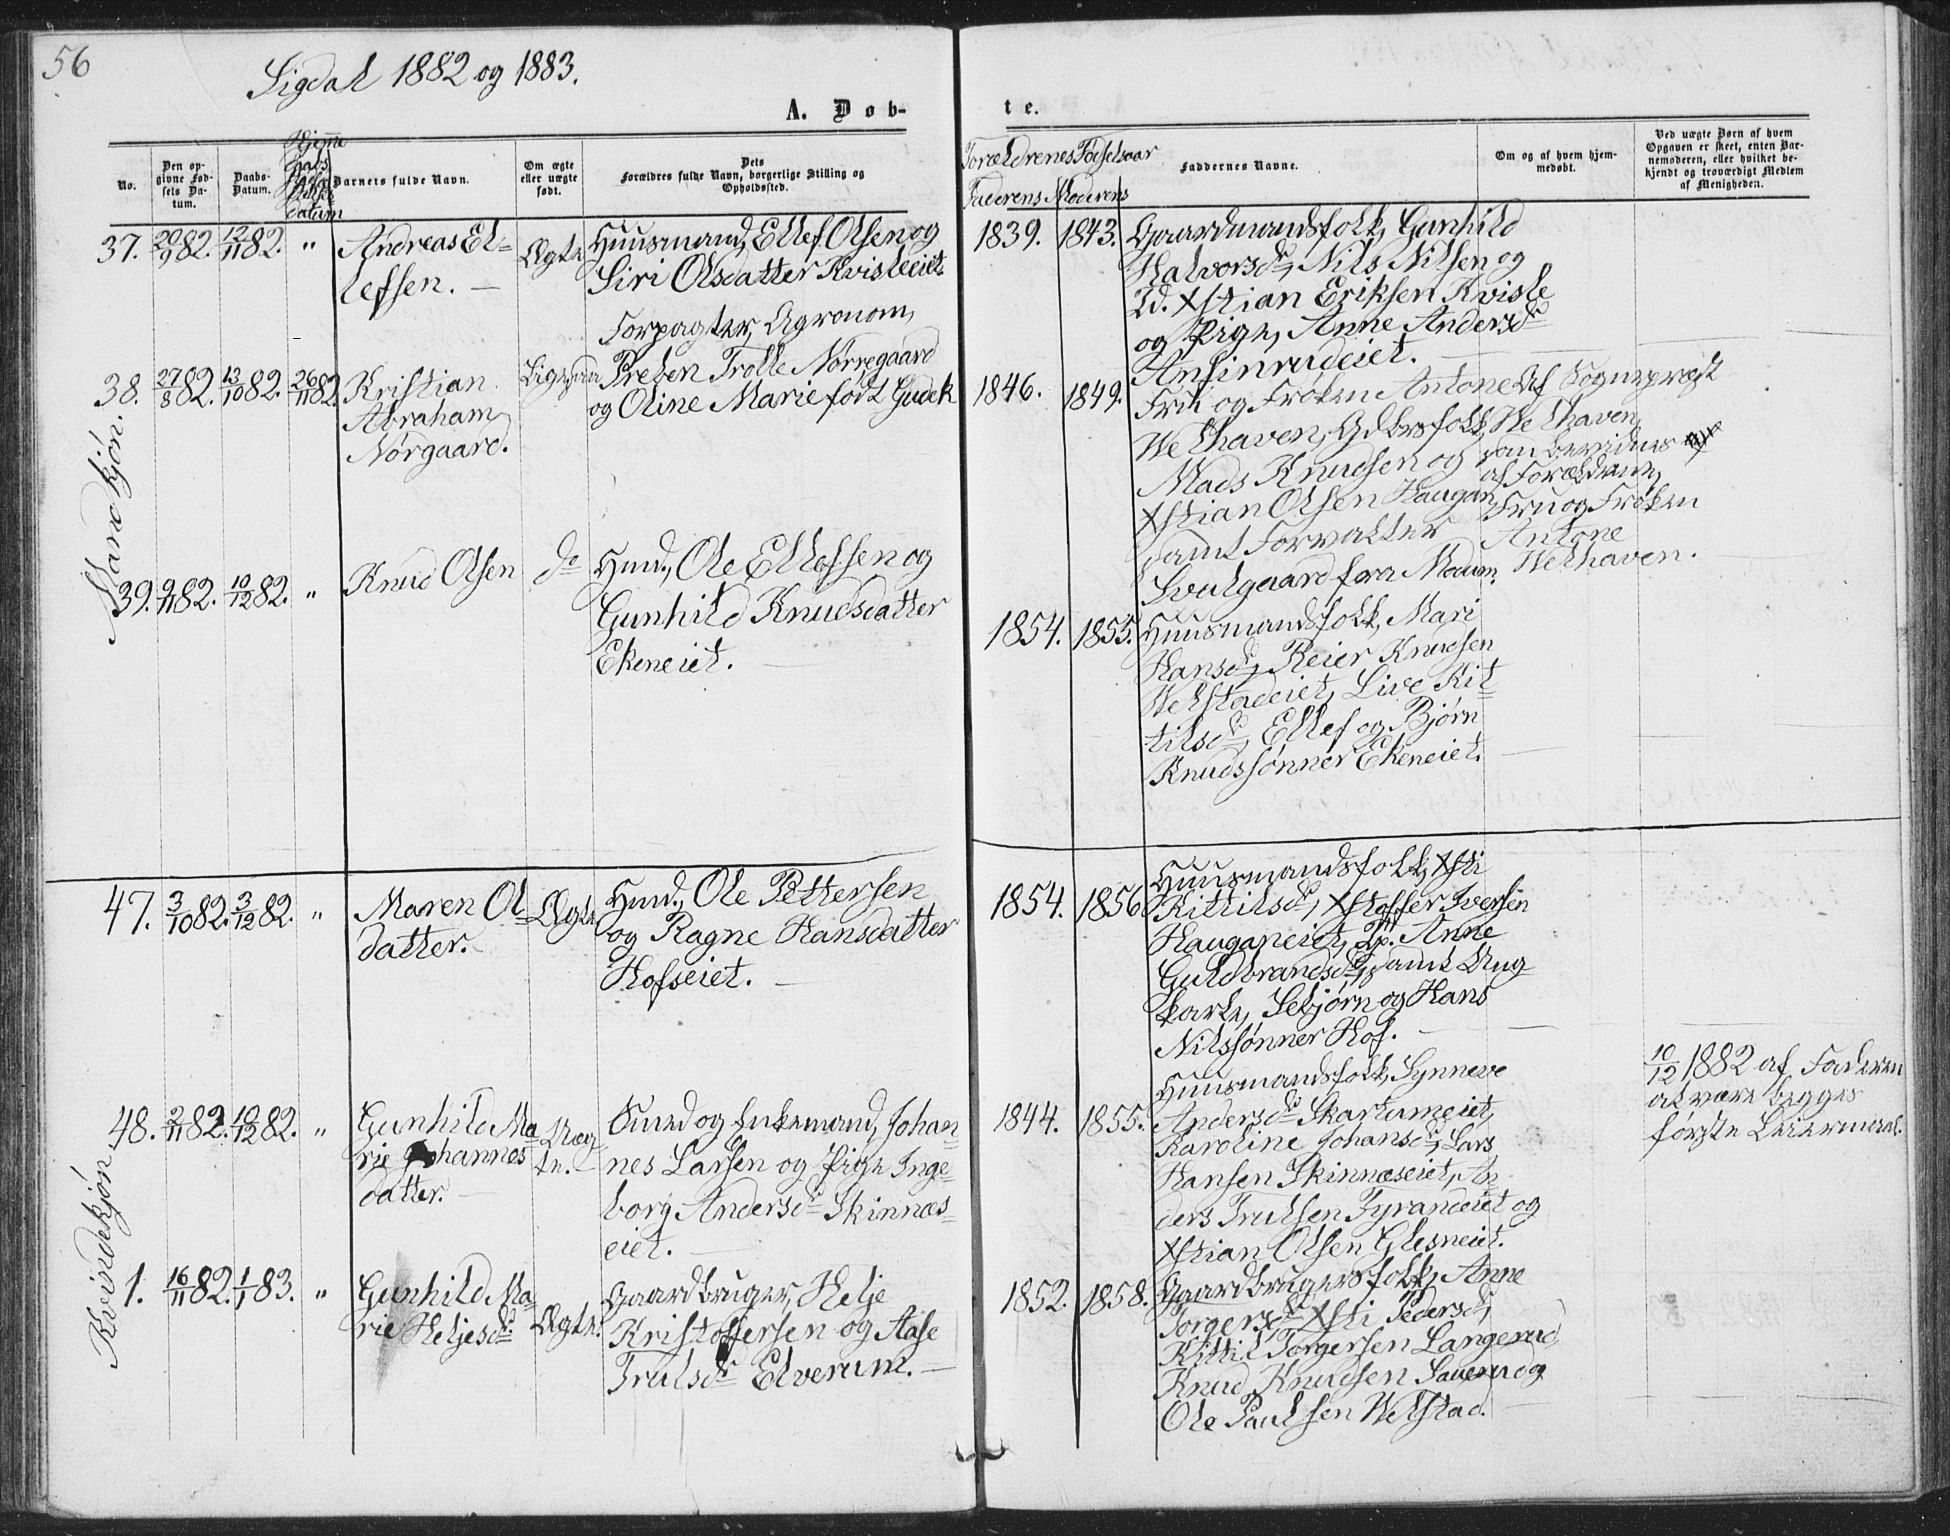 56
Sigdal 1882 og 1883.
A. Døb-
te.
No.
Den op-
givne Fød-
sels Da-
tum.
Daabs-
Datum.
Hjem̅e
daabs
datum
Barnets fulde Navn.
Om ægte
eller uægte
født.
Dets
Forældres fulde Navn, borgerlige Stilling og
Opholdssted.
Forældrenes Fødselsaar
Faderens Moderens
Faddernes Navne.
Om og af hvem hjem-
medøbt.
Ved uægte Børn af hvem
Opgaven er skeet, enten Bar-
nemoderen, eller hvilket be-
kjendt og troværdigt Medlem
af Menigheden.
Mandkjøn.
37. 20/9 82. 12/11 82. "
Andreas El-
lefsen. —
Ægte
Huusmand, Ellef Olsen og
Siri Olsdatter Kvisleeiet
1839. 1843.
Gaardmandsfolk, Gunhild
Halvorsdr, Nils Nilsen og
Id. Xstian Eriksen Kvisle
og Pige, Anne Andersdr
Ansinrudeiet.
38. 27/8 82. 13/10 82. 26/11 82
Kristian
Abraham
Nørgaard.
Ligesaa
Forpagter, Agronom,
Preben Trolle Nørregaard
og Oline Marie født Gudek
1846. 1849.
Fru og Frøken Antone
Welhaven, Gdbrsfolk
Mads Knudsen og
Xstian Olsen Haugan
samt Forvalter
Svalgaard fra Modum.
Af Sognepræst
Welhaven,
som bevidnes
af Forældrene,
Fru og Frøken
Antone
Welhaven.
39. 9/11 82. 10/12 82. "
Knud Olsen
do
Hmd., Ole Ellefsen og
Gunhild Knudsdatter
Ekeneiet. —
1854. 1855.
Huusmandsfolk, Mari
Hansdr, Reier Knudsen
Welstadeiet, Live Kit-
tilsdr, Ellef og Bjørn
Knudssønner Ekeneiet.
Kvindekjøn.
47. 3/10 82. 3/12 82. "
Maren Ol-
datter.
Ægte
Hmd., Ole Pettersen
og Ragne Hansdatter
Hofseiet. —
1854. 1856
Huusmandsfolk, Xsti
Kittilsdr, Xstoffer Iversen
Hauganeiet, Pp. Anne
Guldbrandsdr, samt Ung-
karle, Sebjørn og Hans
Nilssønner Hof.
48. 2/11 82. 10/12 82. "
Gunhild Ma-
rie Johannes
datter. —
Uæg-
te.
Smed og Enkemand, Johan-
nes Larsen og Pige Inge-
borg Andersdr Skinnæs-
eiet. —
1844. 1855.
Huusmandsfolk, Synneve
Andersdr Skartumeiet,
Karoline Johansdr, Lars
Hansen Skinnæseiet, An-
ders Trulsen Fyrandeiet og
Xstian Olsen Glesneiet.
10/12 1882 af Faderen
at være begges
første Leiermaal.
1. 16/11 82. 1/1 83. "
Gunhild Ma-
rie Heljesdr
Ægte.
Gaardbruger, Helje
Kristoffersen og Aase
Trulsdr Elverum. —
1852. 1858.
Gaardbrugersfolk, Anne
Torgersdr Xsti Pedersdr,
Kittil Torgersen Langerud,
Knud Knudsen Saueru og
Ole Paulsen Welstad.